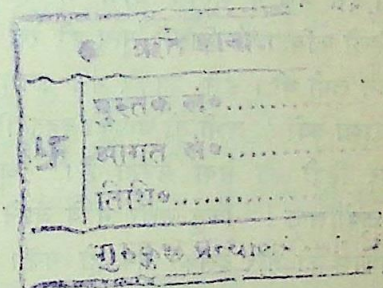 पुस्तक सं०.........
आगत सं०.........
तिथि०.............
गुरुकुल ग्रन्थालय